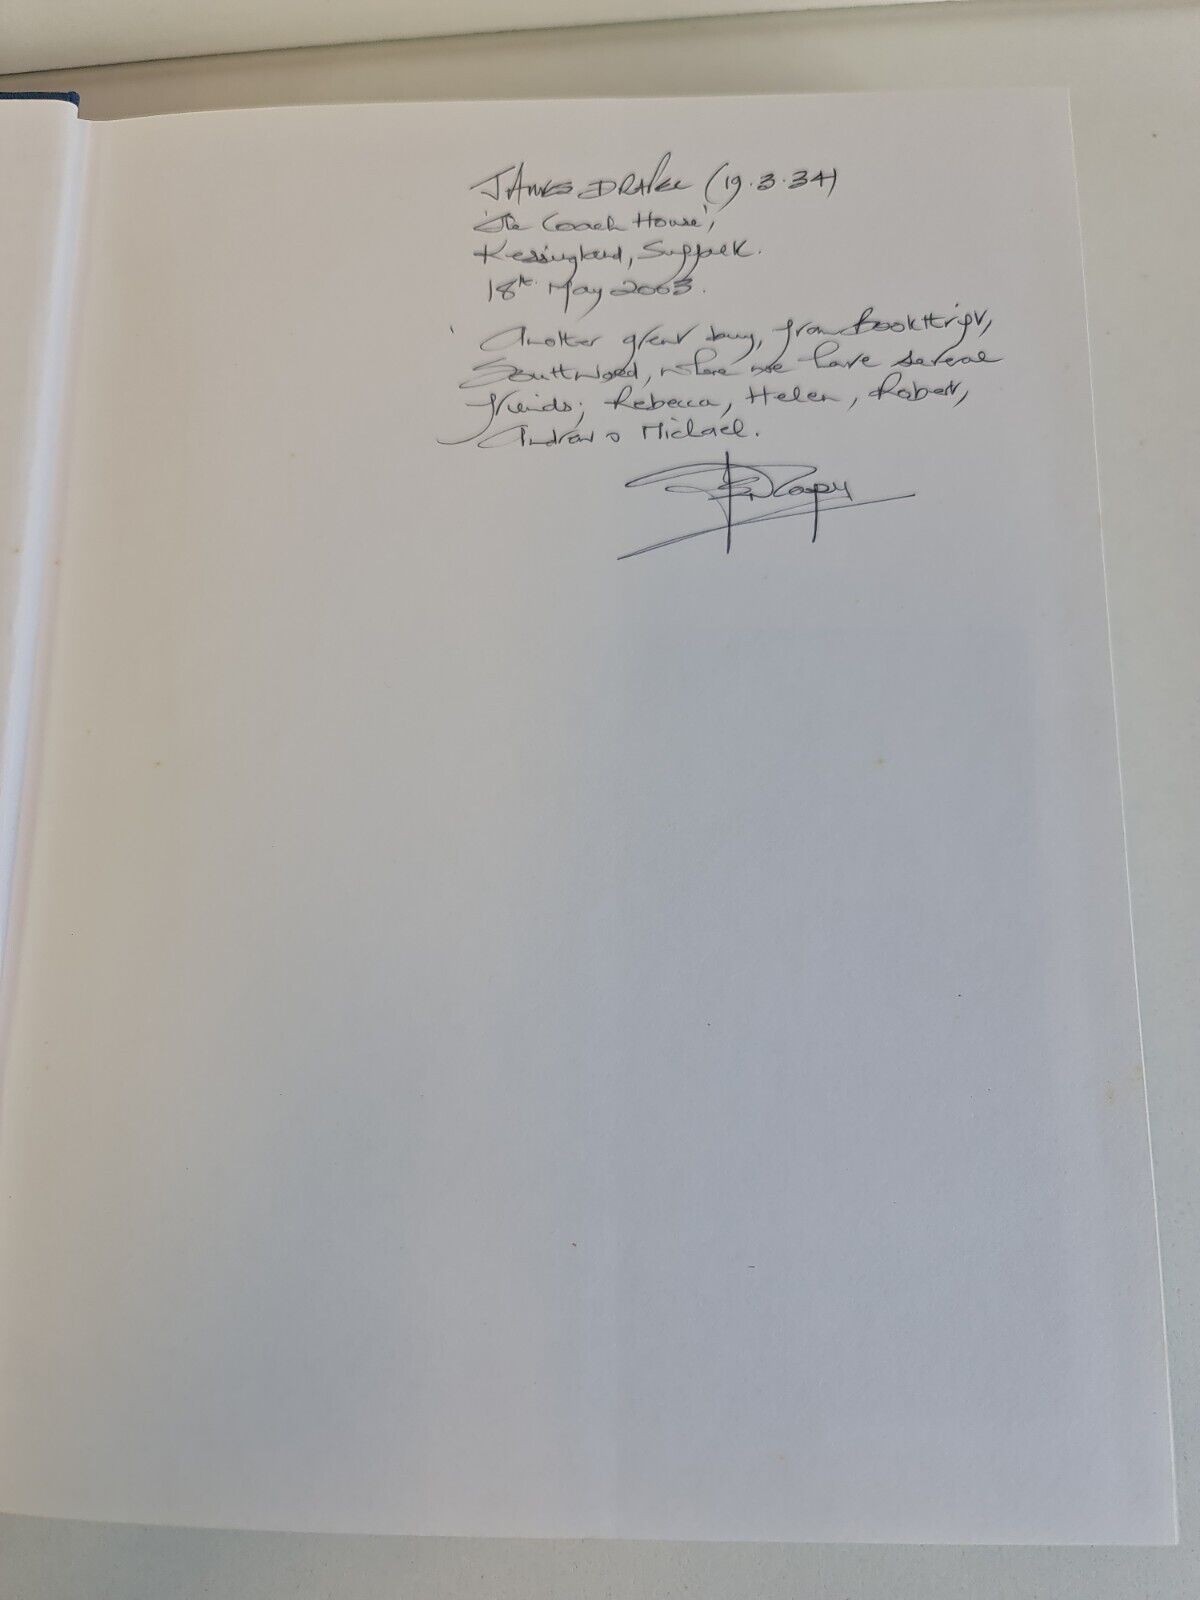 JAMES DRAKE (19.3.34)
'The Coach House',
Kessingland, Suffolk.
18th May 2003.
Another great buy, from Bookthrift,
Southwold, where we have several
friends; Rebecca, Helen, Robert,
Andrew & Michael.